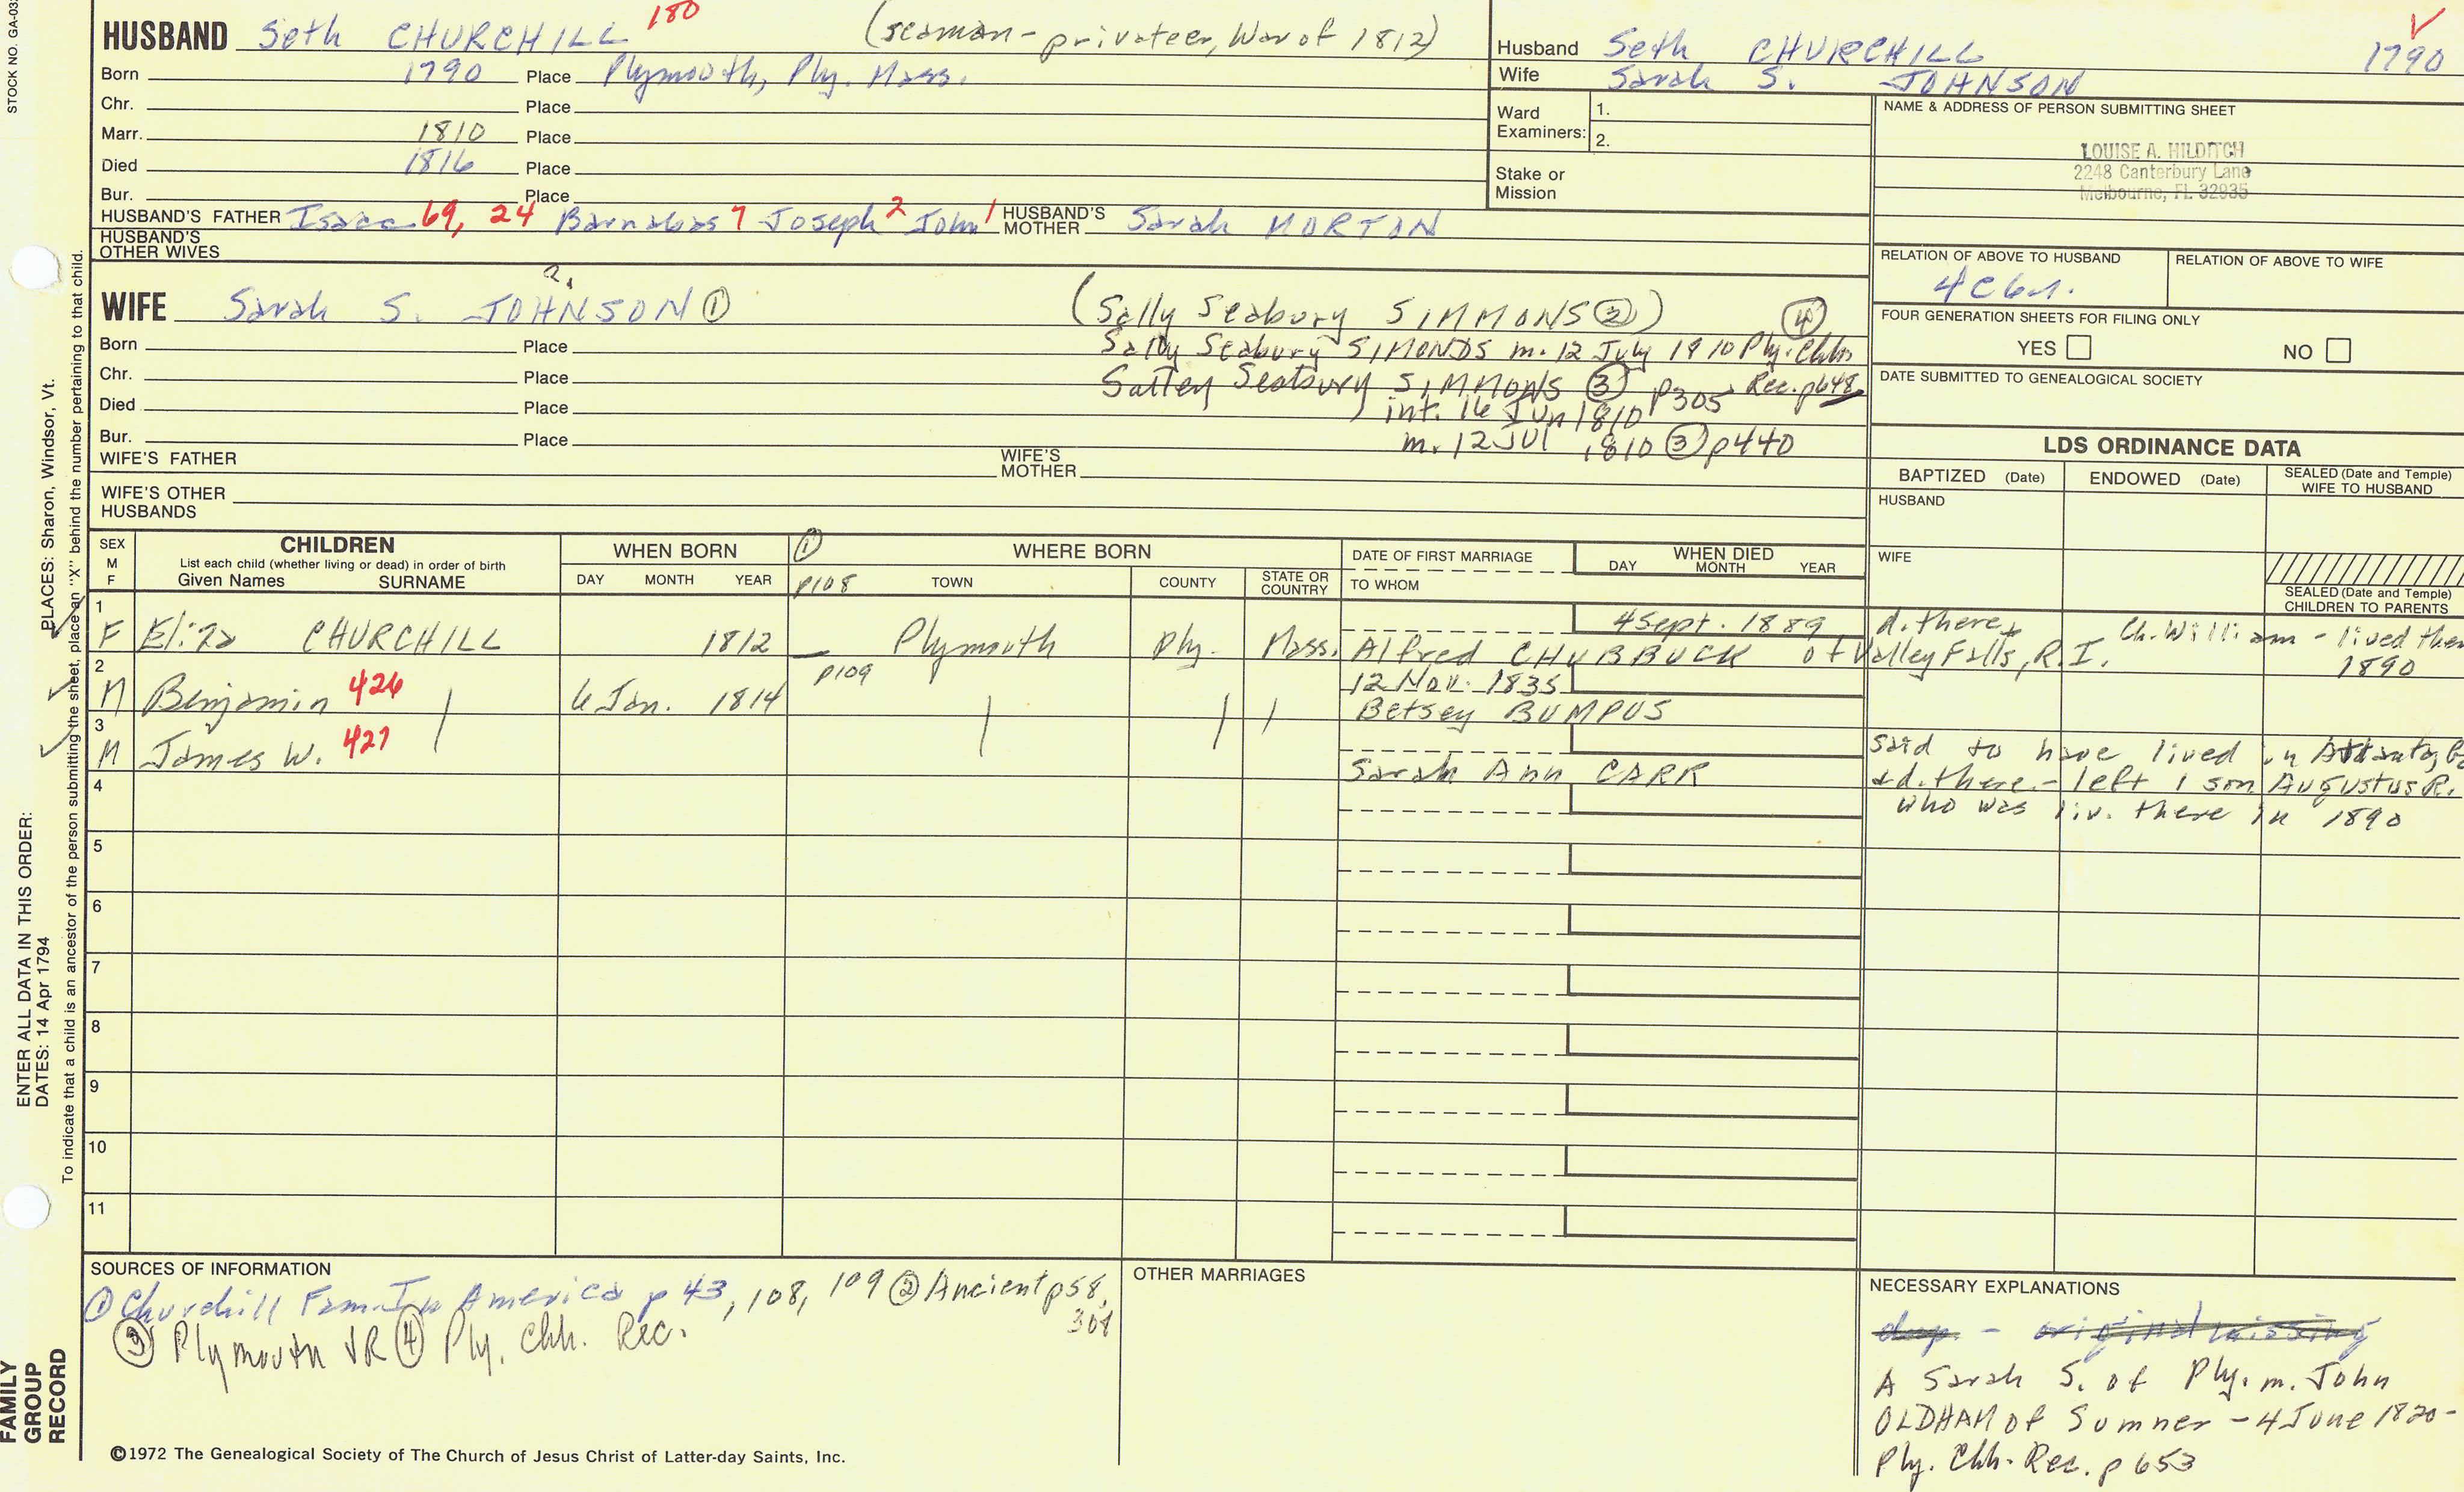 STOCK NO. GA-03
HUSBAND Seth CHURCHILL 180 (seaman - privateer, War of 1812)
Born 1790 Place Plymouth, Ply. Mass.
Chr. Place
Marr. 1810 Place
Died 1816 Place
Bur. Place
HUSBAND'S FATHER Isaac 69, 24 Barnabas 7 Joseph 2 John 1 HUSBAND'S MOTHER Sarah MORTON
HUSBAND'S OTHER WIVES
Husband Seth CHURCHILL 1790
Wife Sarah S. JOHNSON
Ward Examiners: 1.
2.
Stake or Mission
NAME & ADDRESS OF PERSON SUBMITTING SHEET
LOUISE A. HILDITCH
2248 Canterbury Lane
Melbourne, FL 32935
RELATION OF ABOVE TO HUSBAND RELATION OF ABOVE TO WIFE
FOUR GENERATION SHEETS FOR FILING ONLY
YES NO
DATE SUBMITTED TO GENEALOGICAL SOCIETY
?
WIFE Sarah S. JOHNSON ① (Sally Seabury SIMMONS ②) ④
Sally Seabury SIMONDS m. 12 July 1910 Ply. Chh
Rec. p648
Born Place
Chr. Place
Salley Seabury SIMMONS ③ p305
int. 16 Jun 1810
m. 12 Jul 1810 ③ p440
Died Place
Bur. Place
WIFE'S FATHER WIFE'S MOTHER
WIFE'S OTHER HUSBANDS
LDS ORDINANCE DATA
BAPTIZED (Date) ENDOWED (Date) SEALED (Date and Temple) WIFE TO HUSBAND
HUSBAND
WIFE
SEALED (Date and Temple) CHILDREN TO PARENTS
SEX M F
CHILDREN
List each child (whether living or dead) in order of birth
Given Names SURNAME
WHEN BORN
DAY MONTH YEAR
① WHERE BORN
p108 TOWN COUNTY STATE OR COUNTRY
DATE OF FIRST MARRIAGE
TO WHOM
WHEN DIED
DAY MONTH YEAR
1 F Eliza CHURCHILL 1812 Plymouth Ply. Mass. 4 Sept. 1889 d. there, Ch. William - lived there
Alfred CHUBBUCK of Valley Falls, R.I. 1890
2 M Benjamin 426 6 Jan. 1814 p109 12 Nov. 1835
Betsey BUMPUS
3 M James W. 427 said to have lived in
Sarah Ann CARR + d. there - left 1 son Augustus R.
who was liv. there in 1890
4
5
6
7
8
9
10
11
SOURCES OF INFORMATION
① Churchill Fam. In America p 43, 108, 109 ② Ancient p58,
301
③ Plymouth VR ④ Ply. Chh. Rec.
OTHER MARRIAGES
NECESSARY EXPLANATIONS
dup. - original missing
A Sarah S. of Ply. m. John
OLDHAM of Sumner - 4 June 1820 -
Ply. Chh. Rec. p 653
©1972 The Genealogical Society of The Church of Jesus Christ of Latter-day Saints, Inc.
FAMILY GROUP RECORD
ENTER ALL DATA IN THIS ORDER:
DATES: 14 Apr 1794
PLACES: Sharon, Windsor, Vt.
To indicate that a child is an ancestor of the person submitting the sheet, place an "X" behind the number pertaining to that child.